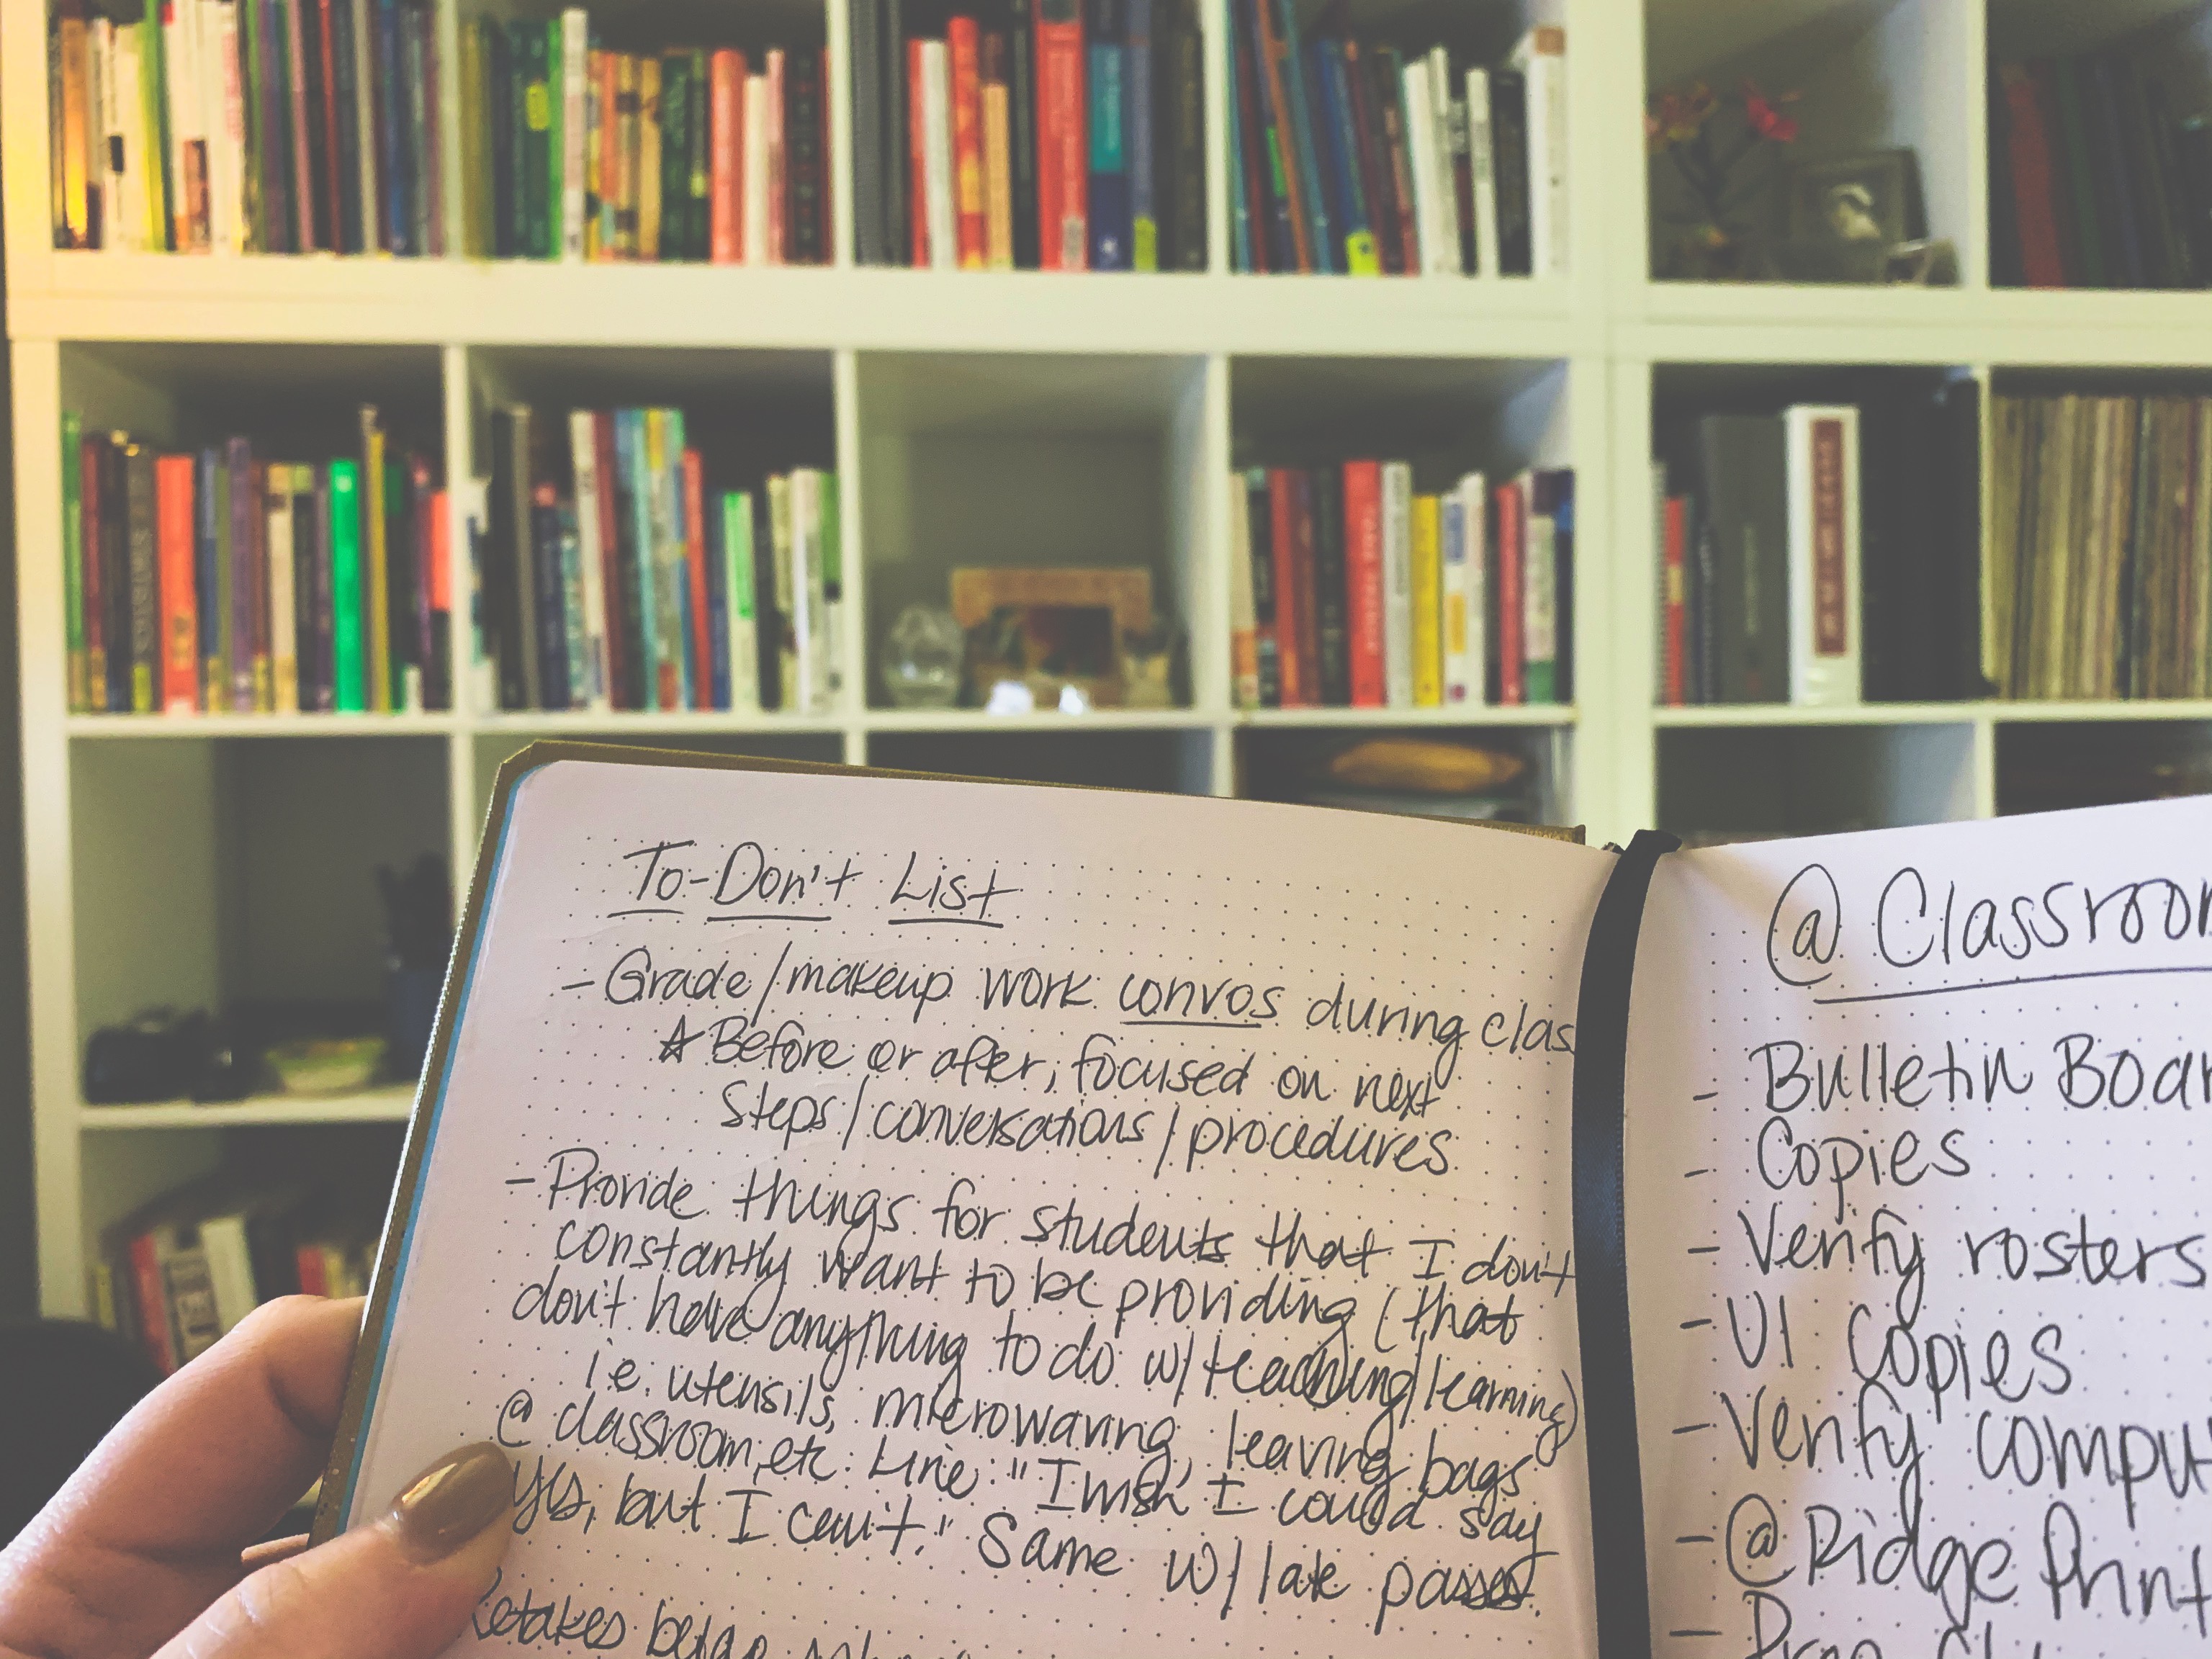 To-Don't List
- Grade/makeup work convos during clas
☆ Before or after, focused on next
steps/conversations/procedures
- Provide things for students that I don't
constantly want to be providing (that
don't have anything to do w/ teaching/learning)
i.e. utensils, microwaving, leaving bags
@ classroom, etc. Line: "I wish I could say
yes, but I can't." Same w/ late passes.
Retakes
@ Classroo
- Bulletin Boar
- Copies
- Verify rosters
- UI copies
- Verify compu
- @ Ridge Print